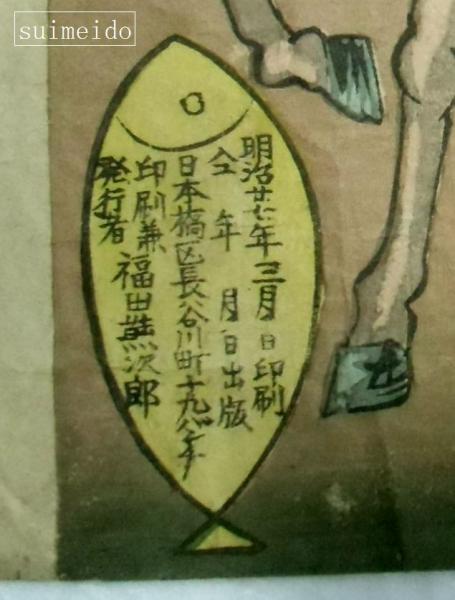 suimeido
明治廿七年三月 日印刷
仝 年 月 日出版
日本橋区長谷川町十九バンチ
印刷兼
発行者 福田熊次郎